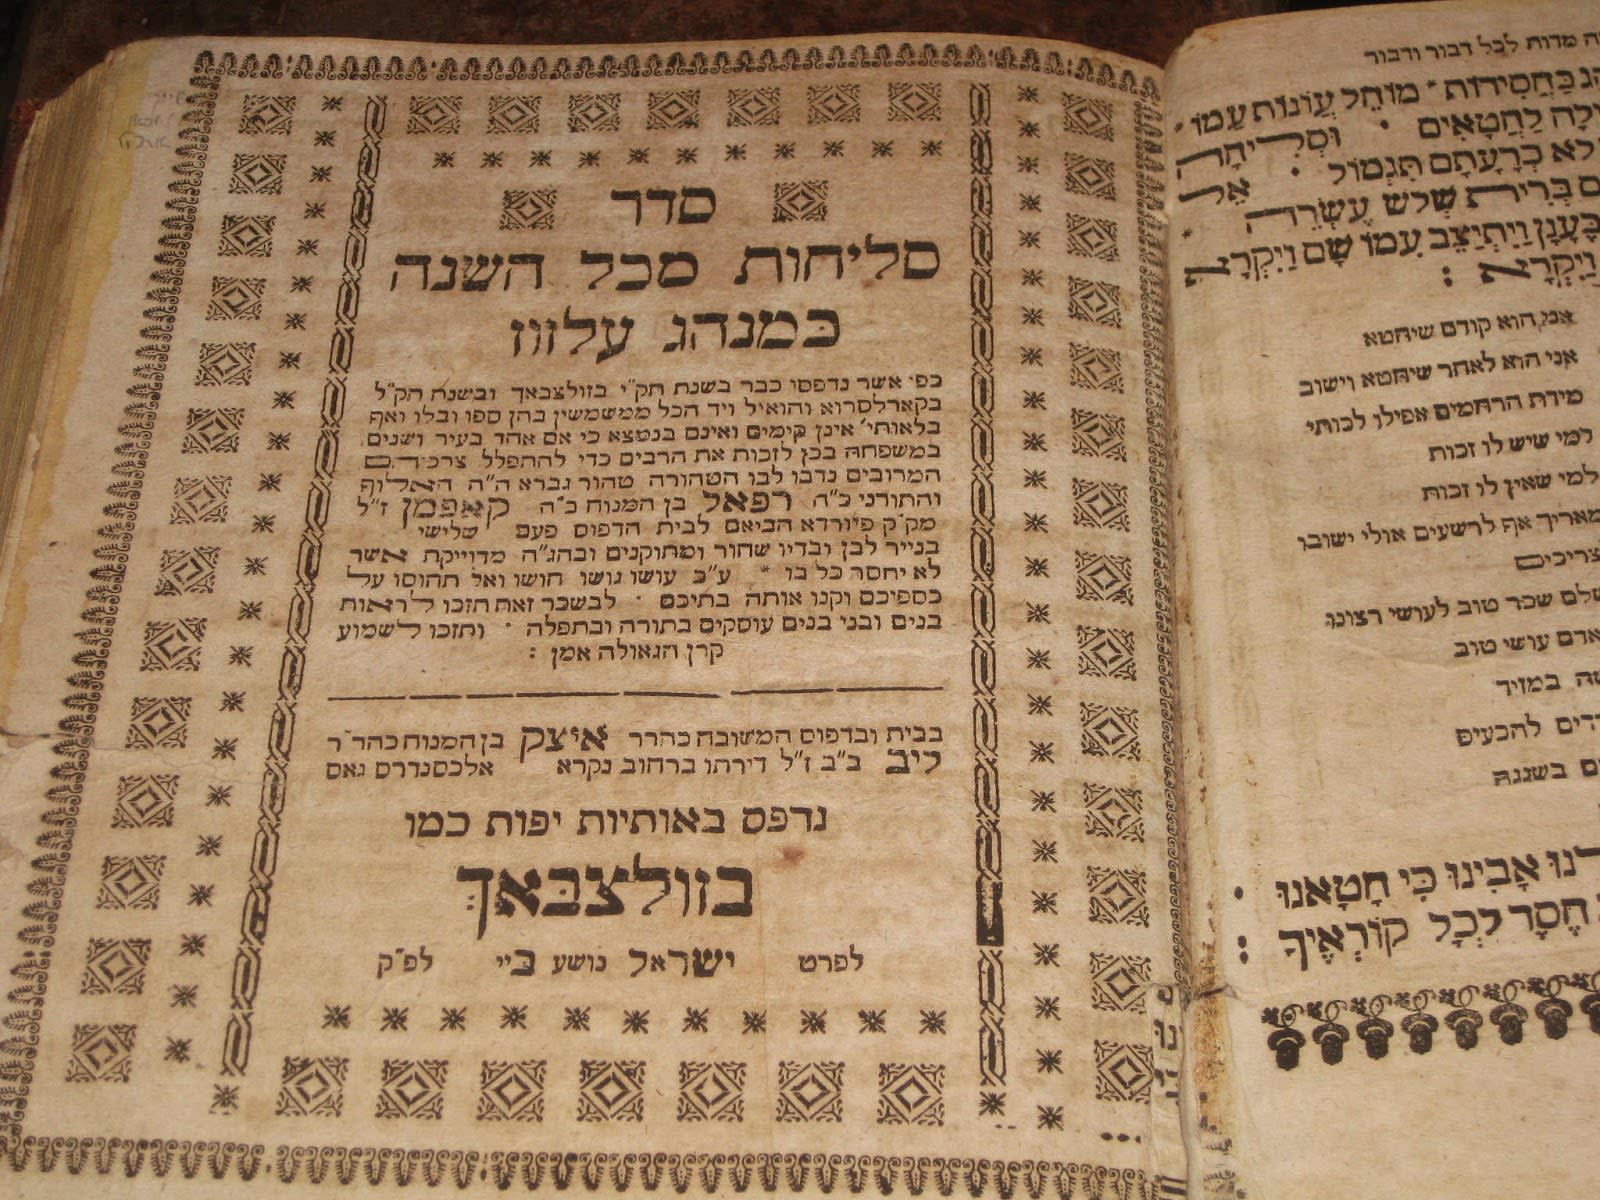 סדר
סליחות מכל השנה
כמנהג עלזוז
כפי אשר נדפסו כבר בשנת תק״י בזולצבאך ובשנת תק״ל
בקארלסרוא והואיל ויד הכל ממשמשין בהן ספו ובלו ואף
בלאותי׳ אינן קימים ואינם בנמצא כי אם אחד בעיר ושנים
במשפחה בכן לזכות את הרבים כדי להתפלל צרכיהם
המרובים נדבו לבו הטהורה טהור גברא ה״ה האלוף
והתורני כ״ה רפאל בן המנוח כ״ה קאפמן ז״ל
מק״ק פיורדא הביאם לבית הדפוס פעם שלישי
בנייר לבן ובדיו שחור ומתוקנים ובהג״ה מדוייקת אשר
לא יחסר כל בו * ע״כ עושו גושו חושו ואל תחוסו על
כספיכם וקנו אותה בתיכם · לבשכר זאת תזכו לראות
בנים ובני בנים עוסקים בתורה ובתפלה · ותזכו לשמוע
קרן הגאולה אמן :
בבית ובדפוס המשובח כהרר איצק בן המנוח כהר״ר
ליב ב״ב ז״ל דירתו ברחוב נקרא אלכסנדרס גאס
נדפס באותיות יפות כמו
בזולצבאך
לפרט ישראל נושע ביי לפ״ק
מדות לכל דבור ודבור
בחסידות * מוחל עונות עמו
לחטאים · וסליחה
לא כרעתם תגמול · אל
ברית שלש עשרה
בענן ויתיצב עמו שם ויקרא
ויקרא :
אני הוא קודם שיחטא
אני הוא לאחר שיחטא וישוב
מידת הרחמים אפילו לכותי
למי שיש לו זכות
למי שאין לו זכות
מאריך אף לרשעים אולי ישובו
צריכים
שכר טוב לעושי רצונו
עושי טוב
במזיד
להכעיס
בשגגה
אָבִינוּ כִּי חָטָאנוּ
חֶסֶד לְכָל קוֹרְאֶיךָ